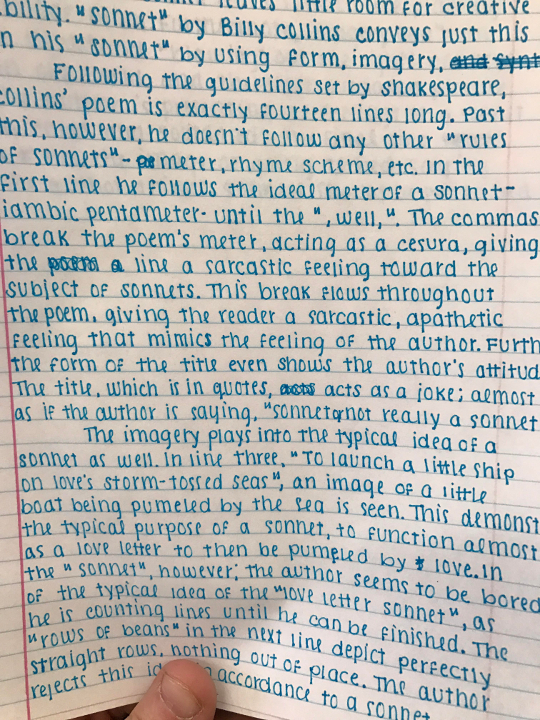 leaves little room for creative
bility. "sonnet" by Billy collins conveys just this
n his "sonnet" by using form, imagery, and synt
Following the guidelines set by shakespeare,
collins' poem is exactly fourteen lines long. Past
this, however, he doesn't follow any other "rules
of sonnets" - meter, rhyme scheme, etc. In the
first line he follows the ideal meter of a sonnet-
iambic pentameter- until the ", well,". The commas
break the poem's meter, acting as a cesura, giving
the poem a line a sarcastic feeling toward the
subject of sonnets. This break flows throughout
the poem, giving the reader a sarcastic, apathetic
feeling that mimics the feeling of the author. Furth
the form of the title even shows the author's attitud
The title, which is in quotes, acts acts as a joke; almost
as if the author is saying, "sonnet, not really a sonnet
The imagery plays into the typical idea of a
sonnet as well. In line three, "To launch a little ship
on love's storm-tossed seas", an image of a little
boat being pumeled by the sea is seen. This demonst
the typical purpose of a sonnet, to function almost
as a love letter to then be pumpled by love. In
the "sonnet", however, the author seems to be bored
of the typical idea of the "love letter sonnet", as
he is counting lines until he can be finished. The
"rows of beans" in the next line depict perfectly
straight rows, nothing out of place. The author
rejects this accordance to a sonnet